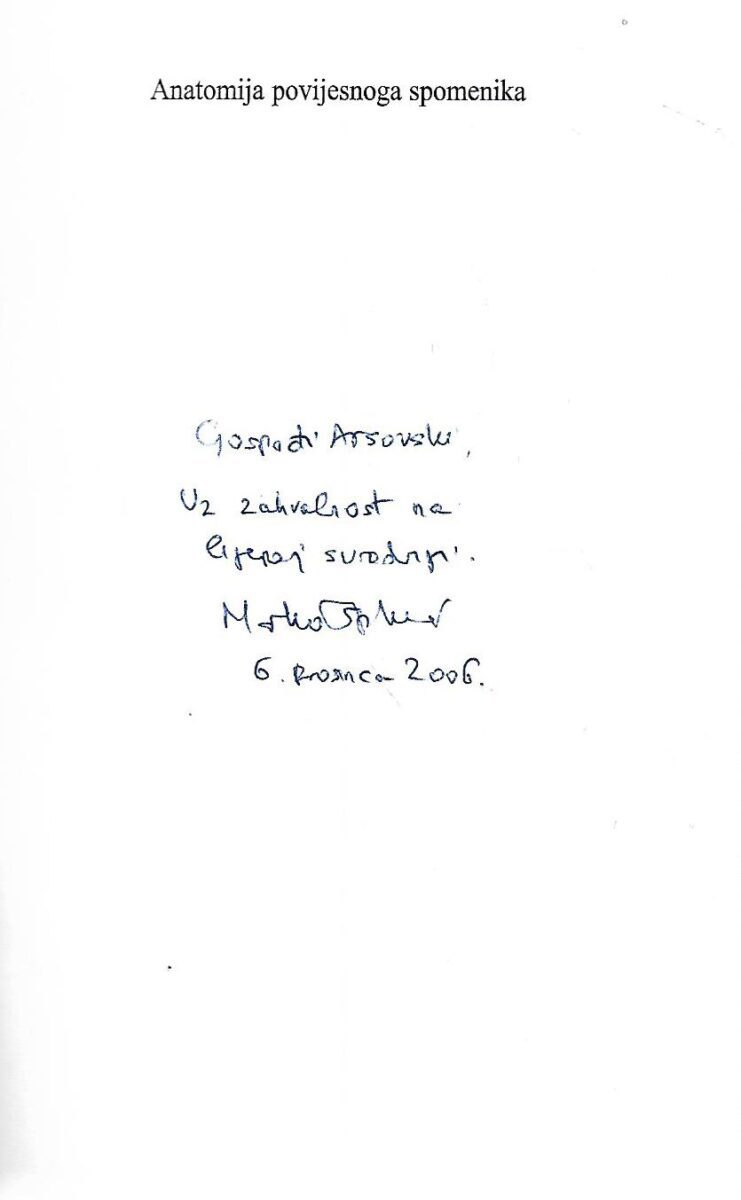 Anatomija povijesnoga spomenika
Gospođi Arsovski,
Uz zahvalnost na
lijepoj suradnji.
Marko Špikić
6. prosinca 2006.